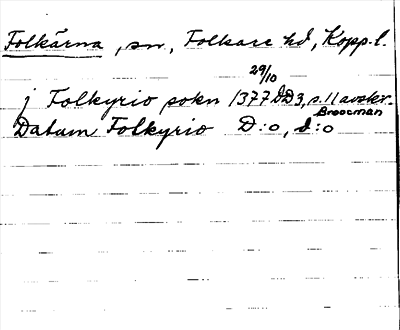 Folkärna, sn, Folkare hd, Kopp.l.
29/10
j Folkyrio sokn 1377 DD3, s.11 avskr.
Broocman
Datum Folkyrio D:o, d:o